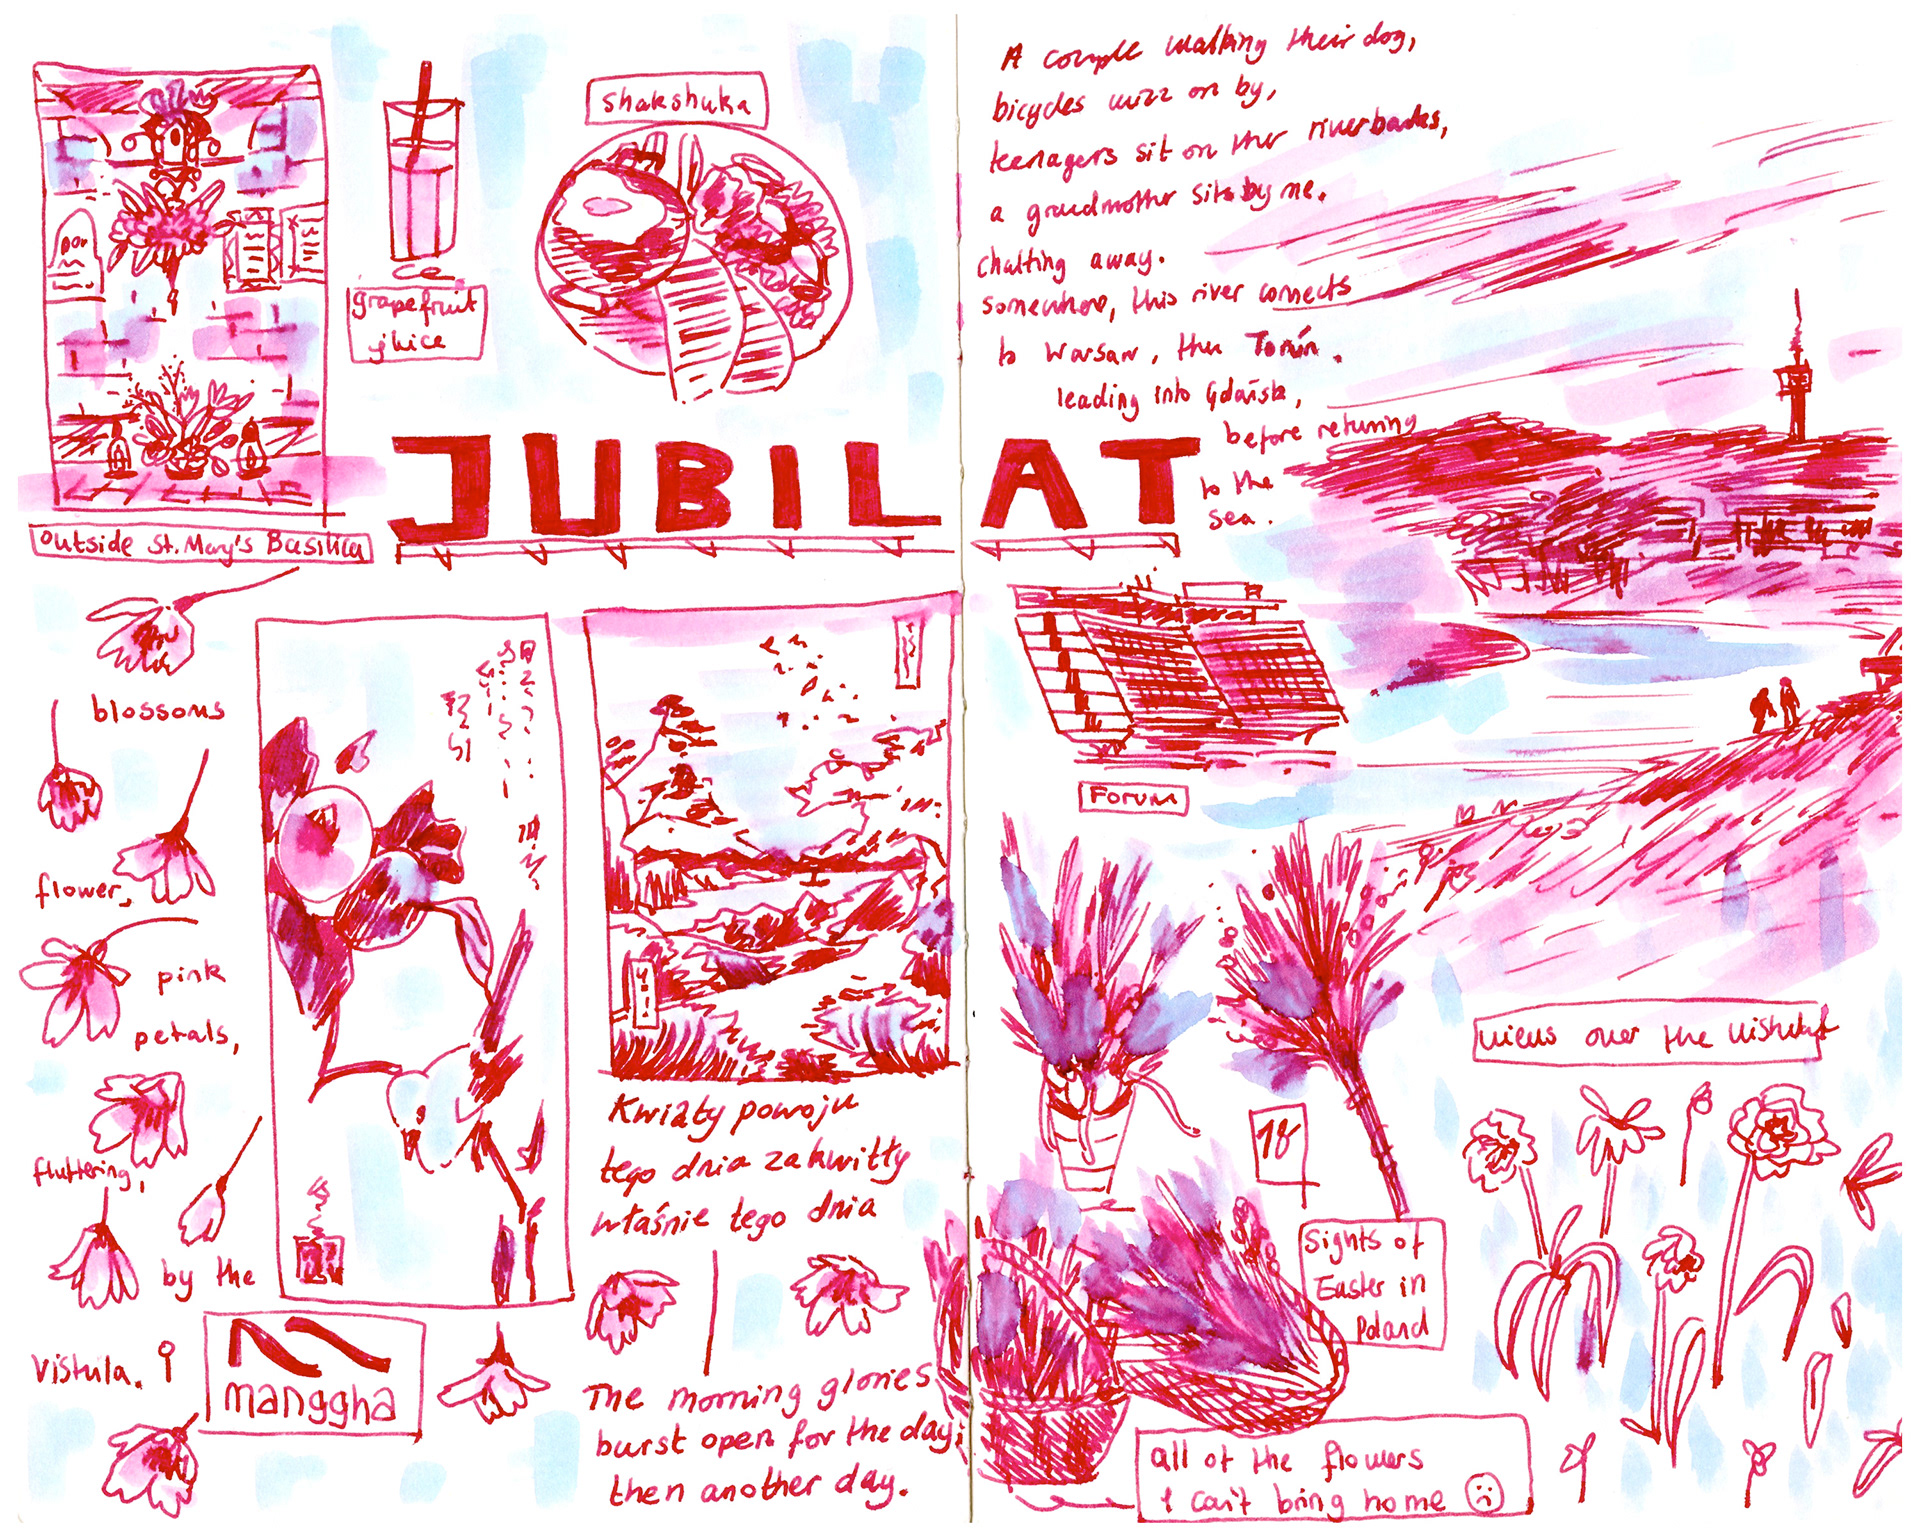 shakshuka
grapefruit
juice
outside St. Mary's Basilica
JUBILAT
A couple walking their dog,
bicycles wizz on by,
teenagers sit on the riverbanks,
a grandmother sits by me.
chatting away.
somewhere, this river connects
to Warsaw, then Toruń.
leading into Gdańsk,
before returning
to the
sea.
blossoms
flower,
pink
petals,
fluttering,
by the
Vistula.
manggha
Kwiaty powoju
tego dnia zakwitły
właśnie tego dnia
The morning glories
burst open for the day;
then another day.
Forum
views over the Vistula
18
Sights of
Easter in
Poland
all of the flowers
I can't bring home